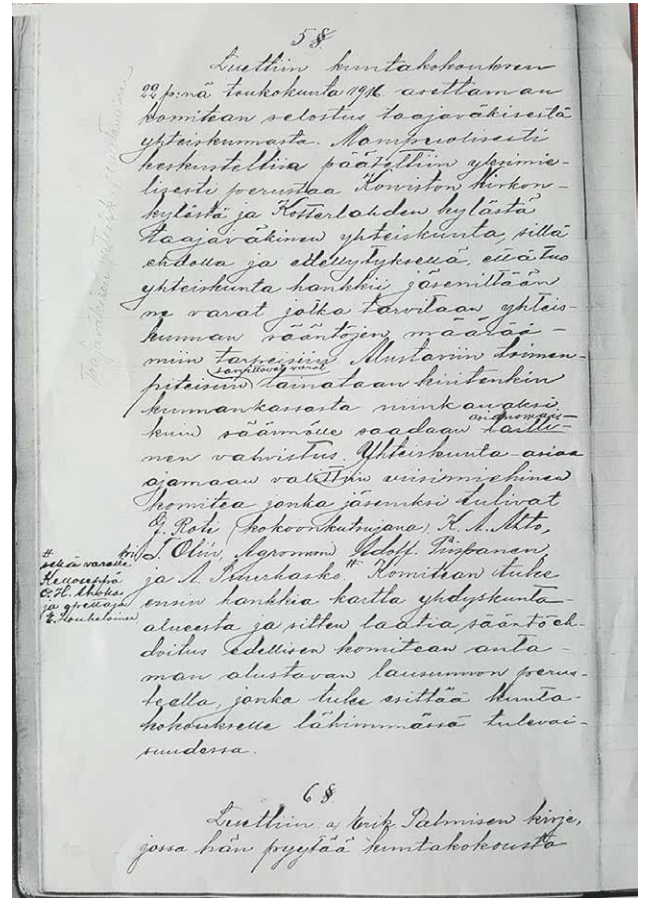 5 §.
Luettiin kuntakokouksen
22 p:nä toukokuuta 1916 asettaman
komitean selostus taajaväkisestä
yhteiskunnasta. Monipuolisesti
keskusteltiin päätettiin yksimie-
lisesti perustaa Koiviston kirkon-
kylästä ja Kotterlahden kylästä
taajaväkinen yhteiskunta, sillä
ehdolla ja edellytyksellä, että tuo
yhteiskunta hankkii jäseniltään
ne varat jotka tarvitaan yhteis-
kunnan sääntöjen määrää-
miin tarpeisiin. Alustaviin toimen-
tarvittavat varat
piteisiin lainataan kuitenkin
kunnankassasta niinkauaksi
asianomais-
kuin säännölle saadaan lailli-
nen vahvistus. Yhteiskunta-asiaa
ajamaan valittiin viisimiehinen
komitea jonka jäseniksi tulivat
G. Roti (kokoonkutsujana), K. A. Atto,
J. Olin, Agronoomi Adolf
ja A. # Komitean tulee
# sekä varalle
Kelloseppä
ja
ensin hankkia kartta yhdyskunta-
alueesta ja sitten laatia sääntöeh-
doitus edellisen komitean anta-
man alustavan lausunnon perus-
teella, jonka tulee esittää kunta-
kokoukselle lähimmässä tulevai-
suudessa.
6 §
Luettiin a, Erik Palmisen kirje,
jossa hän pyytää kuntakokousta